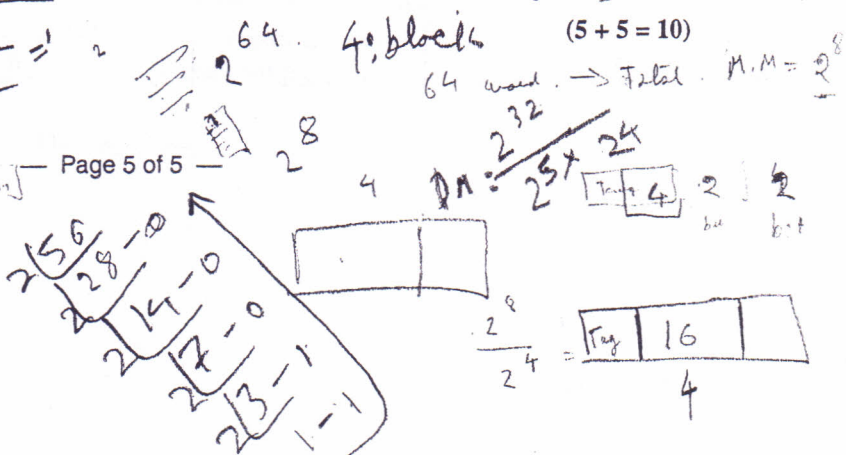 2^64. 4: block (5 + 5 = 10)
64 word. → Total. M.M = 2^8
2^8
— Page 5 of 5 —
4
DM = 2^32 / 2^5 × 2^4
4 2 2
2 | 56
2 | 28 – 0
2 | 14 – 0
2 | 7 – 0
2 | 3 – 1
1 – 1
2^8 / 2^4 = Tag 16
4